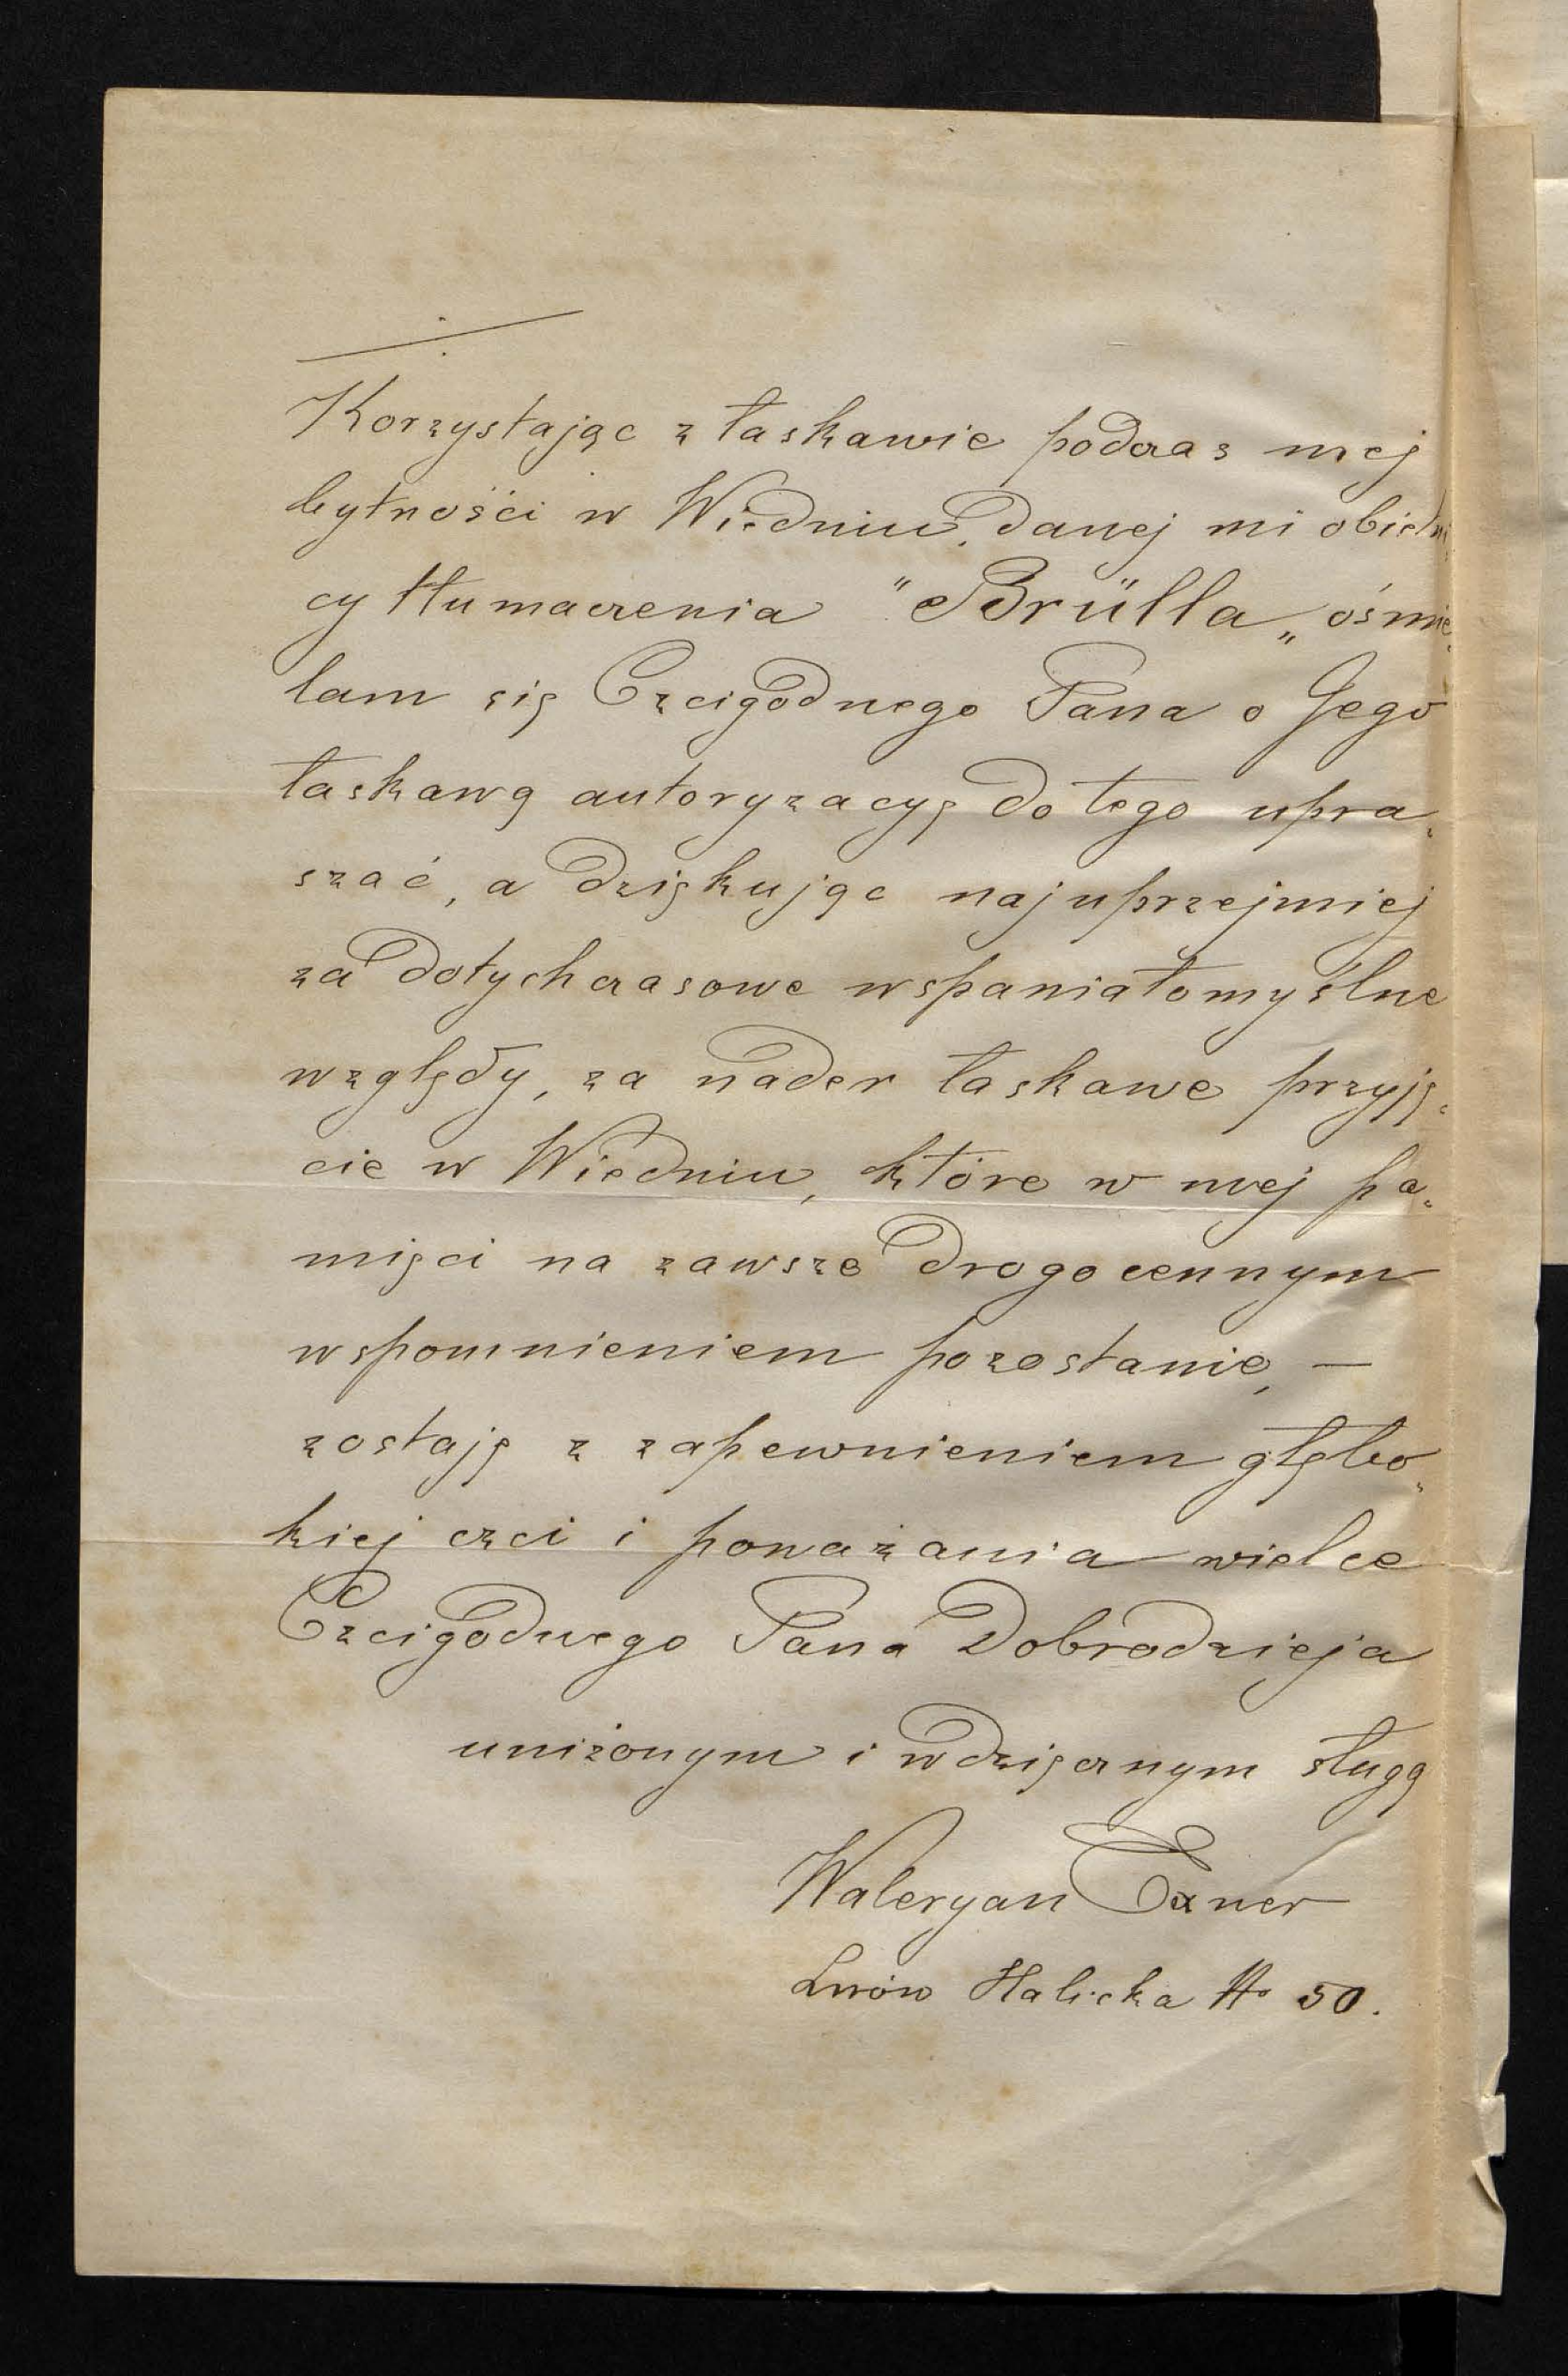 Korzystając z łaskawie podczas mej
bytności w Wiedniu, danej mi obietni„
cy tłumaczenia "Brülla„ ośmie„
lam się Czcigodnego Pana o Jego
łaskawą autoryzacyę do tego upra„
szać, a dziękując najuprzejmiej
za dotychczasowe wspaniałomyślne
względy, za nader łaskawe przyję„
cie w Wiedniu, które w mej pa„
mięci na zawsze drogocennym
wspomnieniem pozostanie, —
zostaję z zapewnieniem głębo„
kiej czci i poważania wielce
Czcigodnego Pana Dobrodzieja
uniżonym i wdzięcznym sługą
Waleryan Exner
Lwów Halicka No 50.